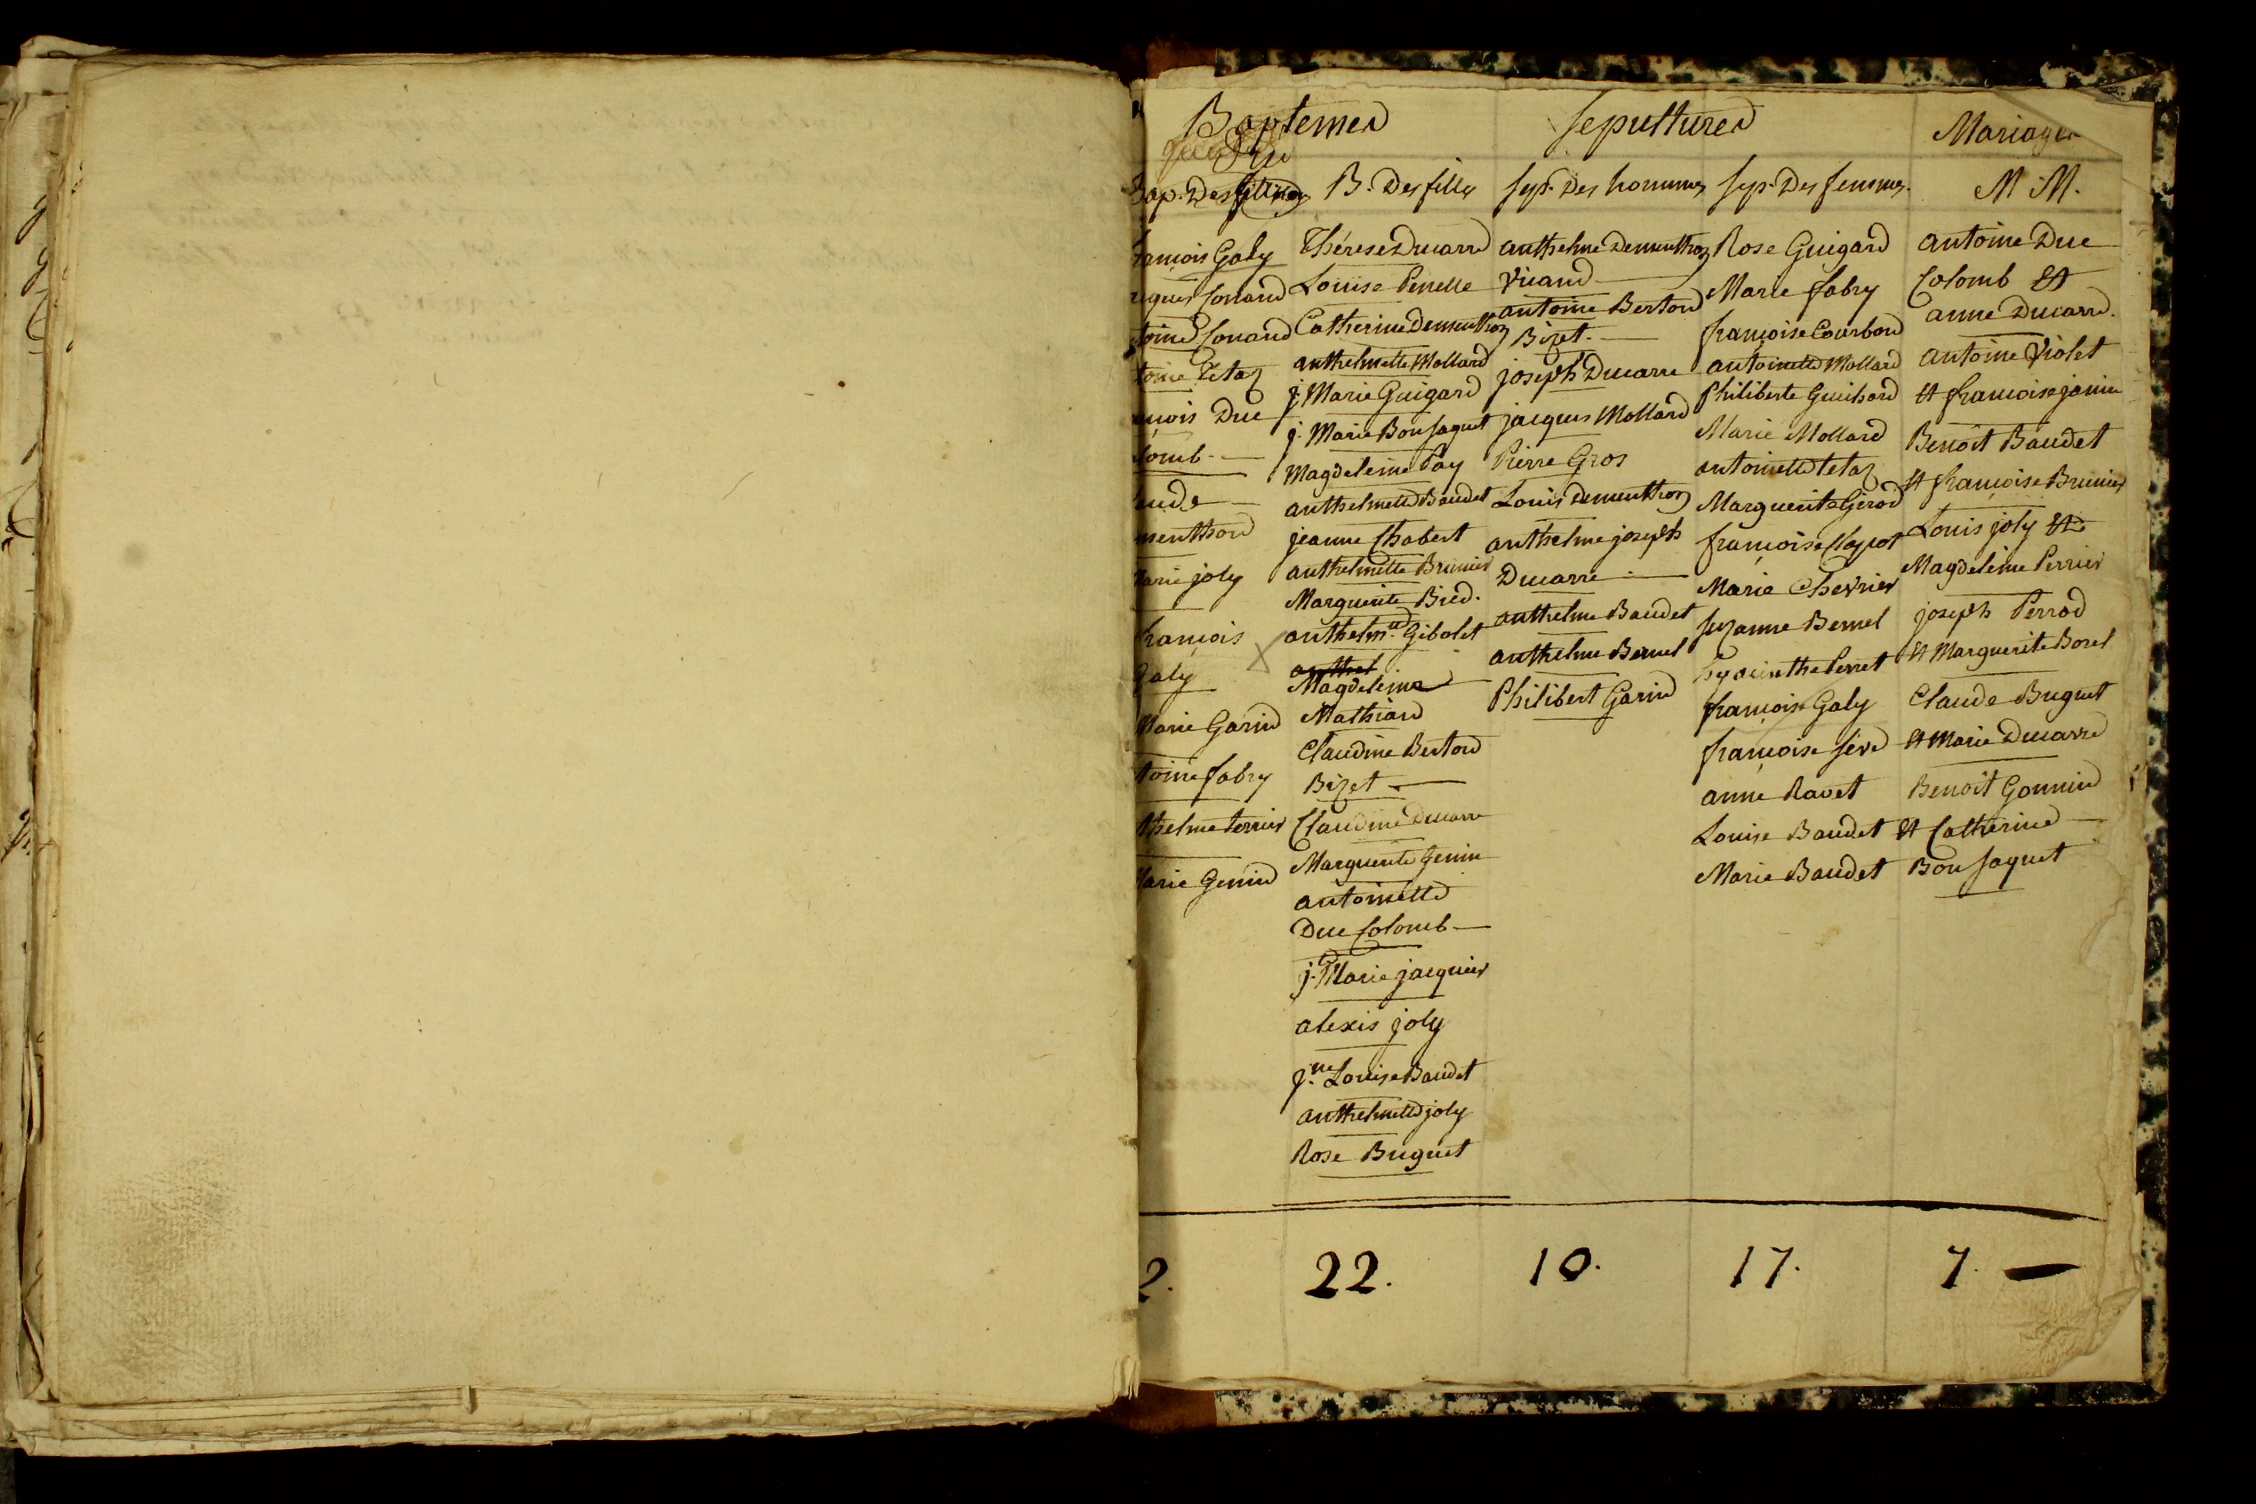 Baptemes
Sepultures
Mariages
Bap. Des
B. Des filles
Sep. Des hommes
Sep. Des femmes.
M M.
françois Galy
Conand
Conand
Tetaz
Duc
Colomb
menthon
Marie joly
françois
Galy
Marie Garin
toine fabry
thelme Perrier
Marie Genin
2.
Thérese Ducarre
Louise Penelle
Catherine Dementhon
anthelmette Mollard
j. Marie Guigard
j. Marie Bonjaquet
Magdeleine Pay
anthelmette Baudet
jeanne Chabert
anthelmette Brunier
Marguerite Bied.
anthelm.te Gibolet
anthel
Magdeleine
Mathiard
Claudine Berton
Bizet
Claudine Ducarre
Marguerite Genin
antoinette
Duc Colomb
j. Marie jacquier
alexis joly
j.ne Louise Baudet
anthelmette joly
Rose Buguet
22.
anthelme Dementhon
Vicand
antoine Berton
Bizet.
joseph Ducarre
jacques Mollard
Pierre Gros
Louis Dementhon
anthelme joseph
Ducarre
anthelme Baudet
anthelme Bernel
Philibert Garin
10.
Rose Guigard
Marie fabry
françoise Courbon
antoinette Mollard
Philiberte Guichard
Marie Mollard
antoinette tetaz
Marguerite Girod
françoise
Marie Chevrier
Suzanne Bernel
hyacinthe Perret
françoise Galy
françoise Sève
anne Ravet
Louise Baudet
Marie Baudet
17.
antoine Duc
Colomb Et
anne Ducarre.
antoine Violet
Et francoise janin
Benoit Baudet
Et françoise Brunier
Louis joly Et
Magdeleine Perrier
joseph Perrod
Et Marguerite Borel
Claude Buguet
Et Marie Ducarre
Benoît Gonnin
Et Catherine
Bonjaquet
7.